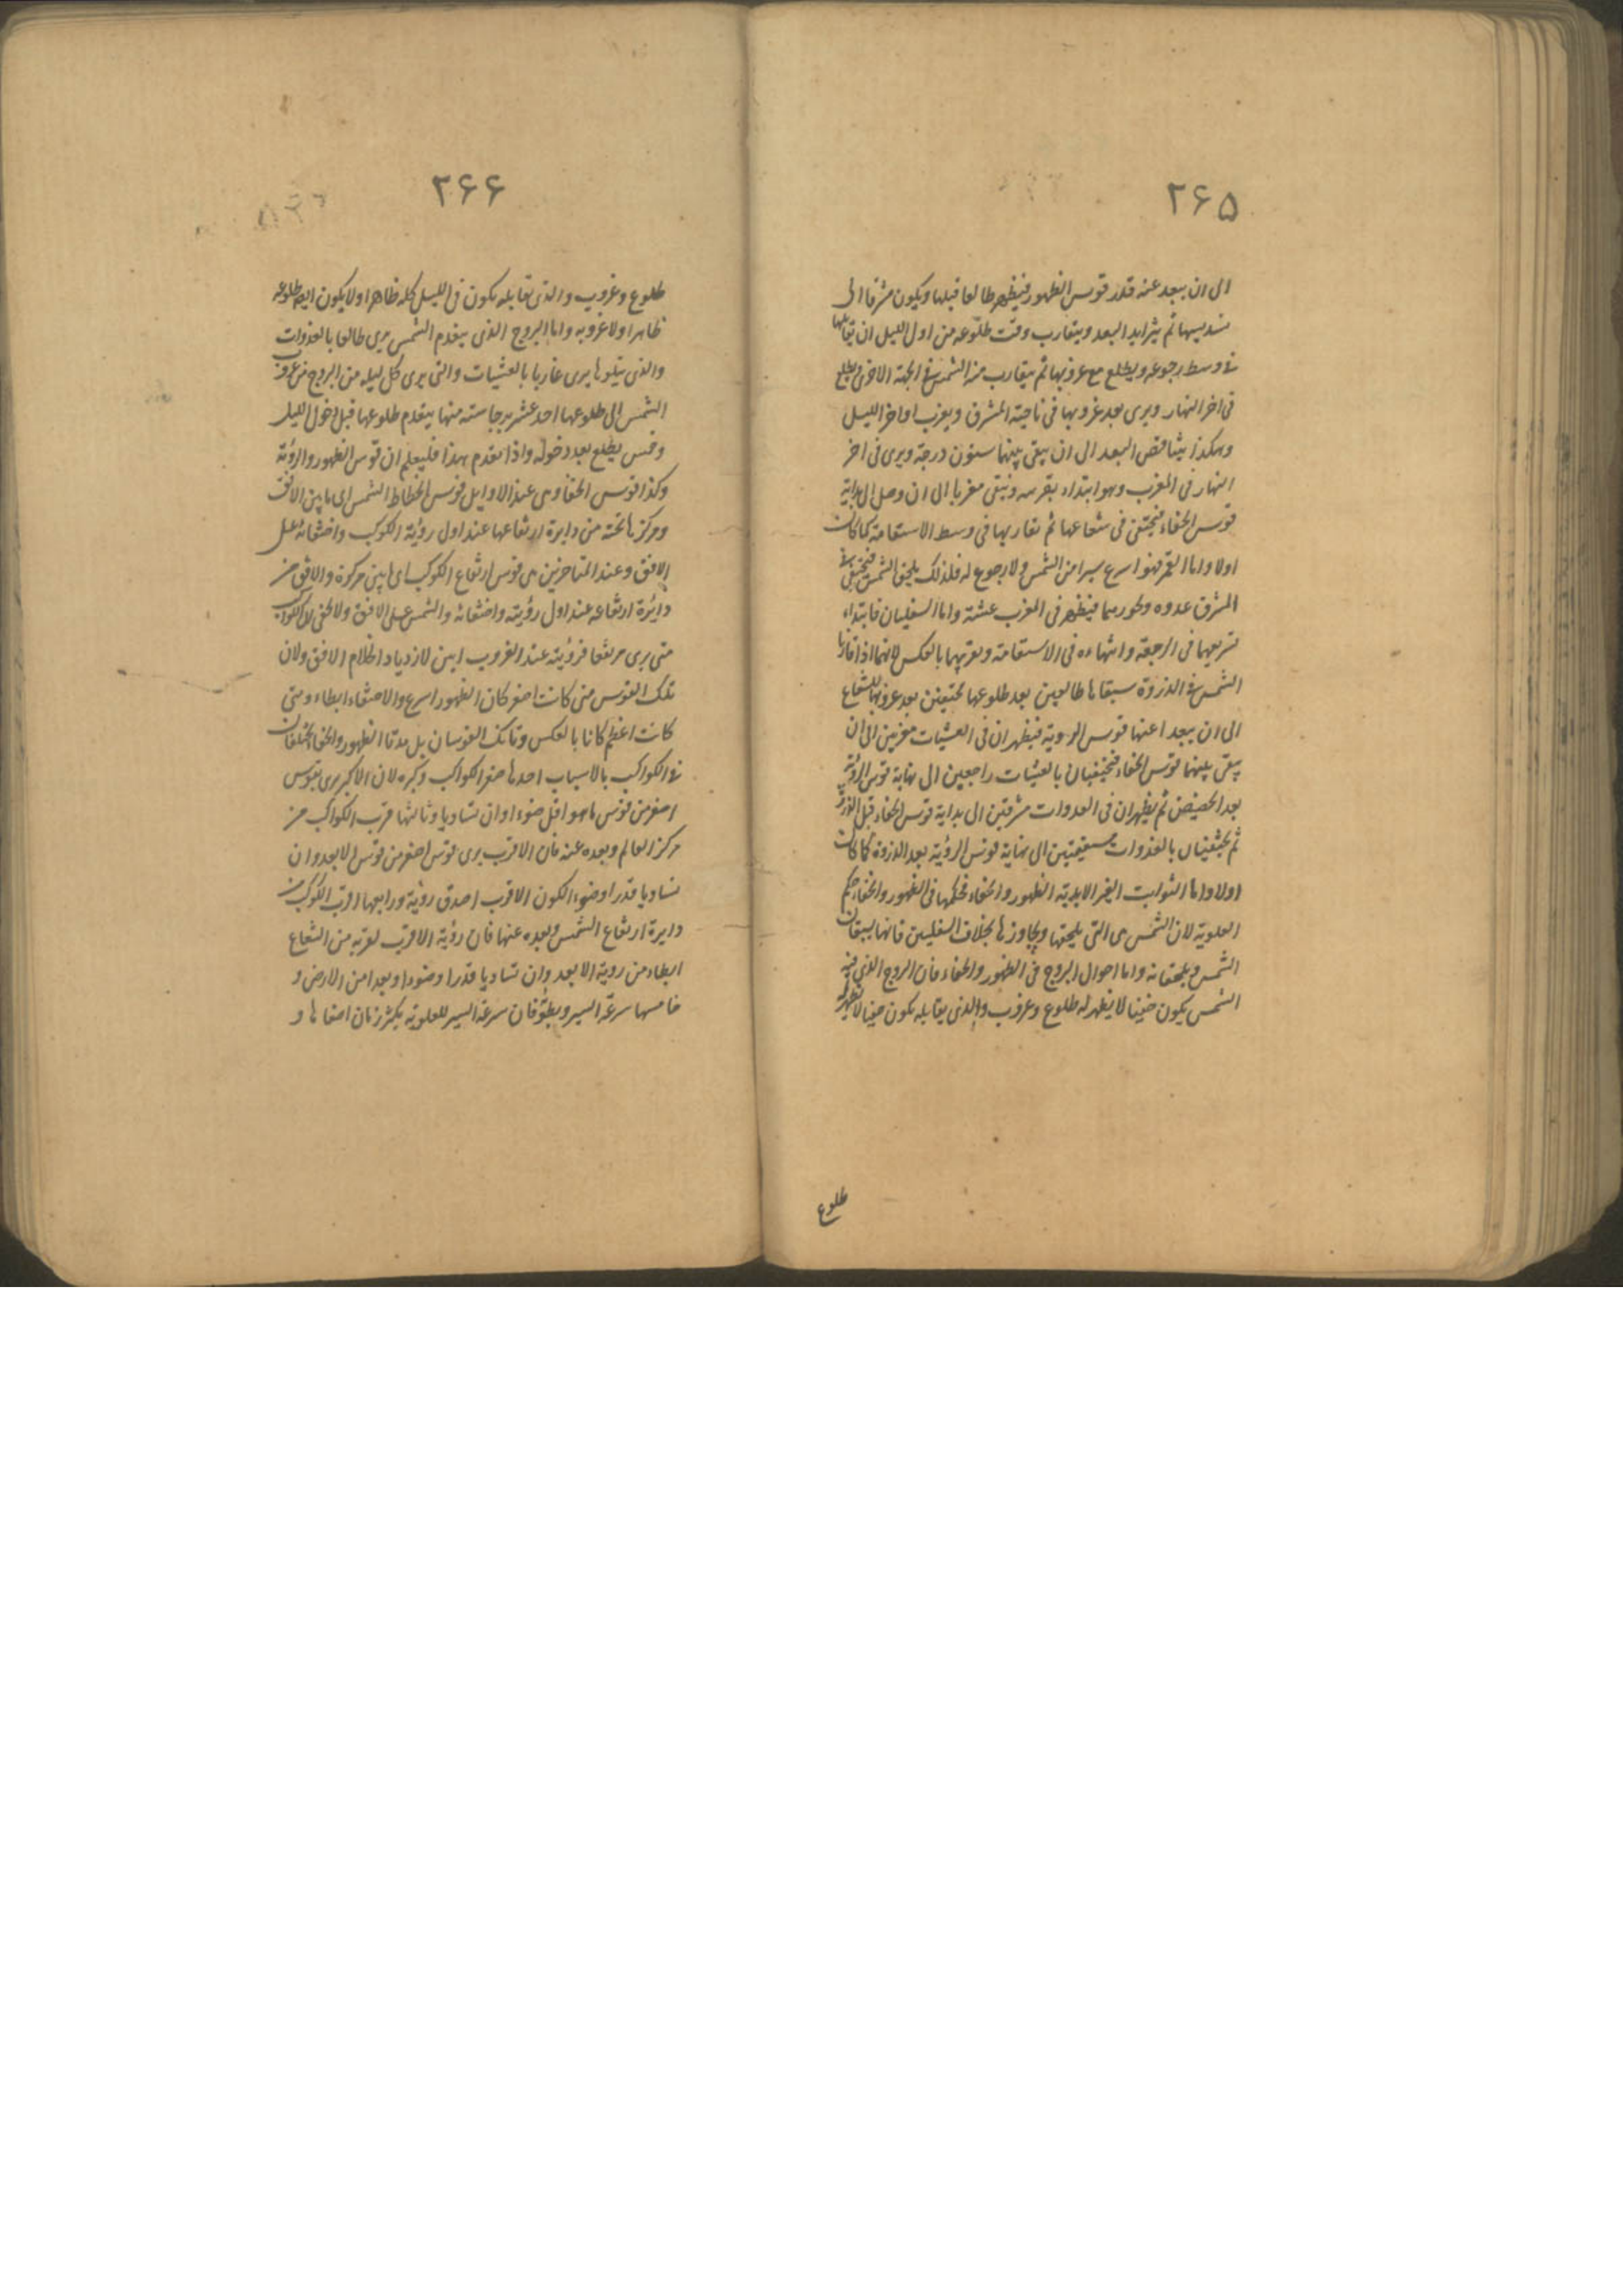 ٢۶۵
الى ان يبعد عنه قدر قوس الظهور فيظهر طالعا قبلها ويكون مشرقا الى
تسديسها ثم يتزايد البعد ويتقارب وقت طلوعه من اول الليل ان يقابلها
فى وسط رجوعه ويطلع مع غروبها ثم يتقارب منه الشمس فى الجهة الاخرى ويطلع
فى اخر النهار ويرى بعد غروبها فى ناحية المشرق ويغرب اواخر الليل
وهكذا يتناقص البعد الى ان يبقى بينهما ستون درجة ويرى فى اخر
النهار فى المغرب وهو ابتداء تغريبه ويبقى مغربا الى ان وصل الى بداية
قوس الخفاء فيختفى فى شعاعها ثم تقاربها فى وسط الاستقامة كما كان
اولا واما القمر فهو اسرع سيرا من الشمس ولا رجوع له فلذلك يلحق الشمس فيختفى فى
المشرق غدوه ويجوزها فيظهر فى المغرب عشية واما السفليان فابتداء
تشريقهما فى الرجعة وانتهاءه فى الاستقامة وتغريبهما بالعكس لانهما اذا قارنا
الشمس فى الذروة سبقاها طالعين بعد طلوعها مختفيين بعد غروبها للشعاع
الى ان يبعدا عنها قوس الروية فيظهران فى العشيات مغربين الى ان
يبقى بينهما قوس الخفاء فيختفيان بالعشيات راجعين الى نهاية قوس الرؤية
بعد الحضيض ثم يظهران فى الغدوات مشرقين الى بداية قوس الخفاء قبل الذروة
ثم يختفيان بالغدوات مستقيمين الى نهاية قوس الرؤية بعد الذروة كما كان
اولا واما الثوابت الغير الابدية الظهور والخفاء فحكمها فى الظهور والخفاء حكم
العلوية لان الشمس هى التى يلحقها ويجاوزها بخلاف السفليين فانهما يسبقان
الشمس ويلحقانه واما احوال البروج فى الظهور والخفاء فان البروج الذى فيه
الشمس يكون خفيا لا يظهر له طلوع وغروب والذى يقابله يكون
طلوع
٢۶۶
طلوع وغروب والذى يقابله يكون فى الليل كله ظاهرا ولا يكون ايضا طلوعه
ظاهرا ولا غروبه واما البروج الذى يتقدم الشمس يرى طالعا بالغدوات
والذى يتلوها يرى غاربا بالعشيات والتى يرى كل ليله من البروج من غروب
الشمس الى طلوعها احد عشر برجا ستة منها يتقدم طلوعها قبل دخول الليل
وخمس يطلع بعد دخوله واذا تقدم هذا فليعلم ان قوس الظهور والرؤية
وكذا قوس الخفا وهى عند الاوايل قوس انحطاط الشمس اى ما بين الافق
ومركزها تحته من دايرة ارتفاعها عند اول رؤية الكوكب واختفائه على
الافق وعند المتاخرين هى قوس ارتفاع الكوكب اى ما بين مركزه والافق من
دائرة ارتفاعه عند اول رؤيته واختفائه والشمس على الافق ولا يخفى ان الكواكب
متى يرى مرتفعا فرؤيته عند الغروب ابين لازدياد اظلام الافق ولان
تلك القوس متى كانت اصغر كان الظهور اسرع والاختفاء ابطاء ومتى
كانت اعظم كانا بالعكس وتانك القوسان بل مدتا الظهور والخفا يختلفان
فى الكواكب بالاسباب احدها صغر الكواكب وكبره لان الاكبر يرى بقوس
اصغر من قوس ما هو اقل ضوءا وان تساويا وثالثها قرب الكواكب من
مركز العالم وبعده عنه فان الاقرب يرى بقوس اصغر من قوس الابعد وان
تساويا قدرا وضوءا لكون الاقرب اصدق روية ورابعها اقرب الكوكب من
دايرة ارتفاع الشمس وبعده عنها فان رؤية الاقرب لقربه من الشعاع
ابطاء من روية الابعد وان تساويا قدرا وضوءا وبعدا من الارض و
خامسها سرعة السير وبطؤه فان سرعة السير للعلوية يكثر زمان اخفاها و